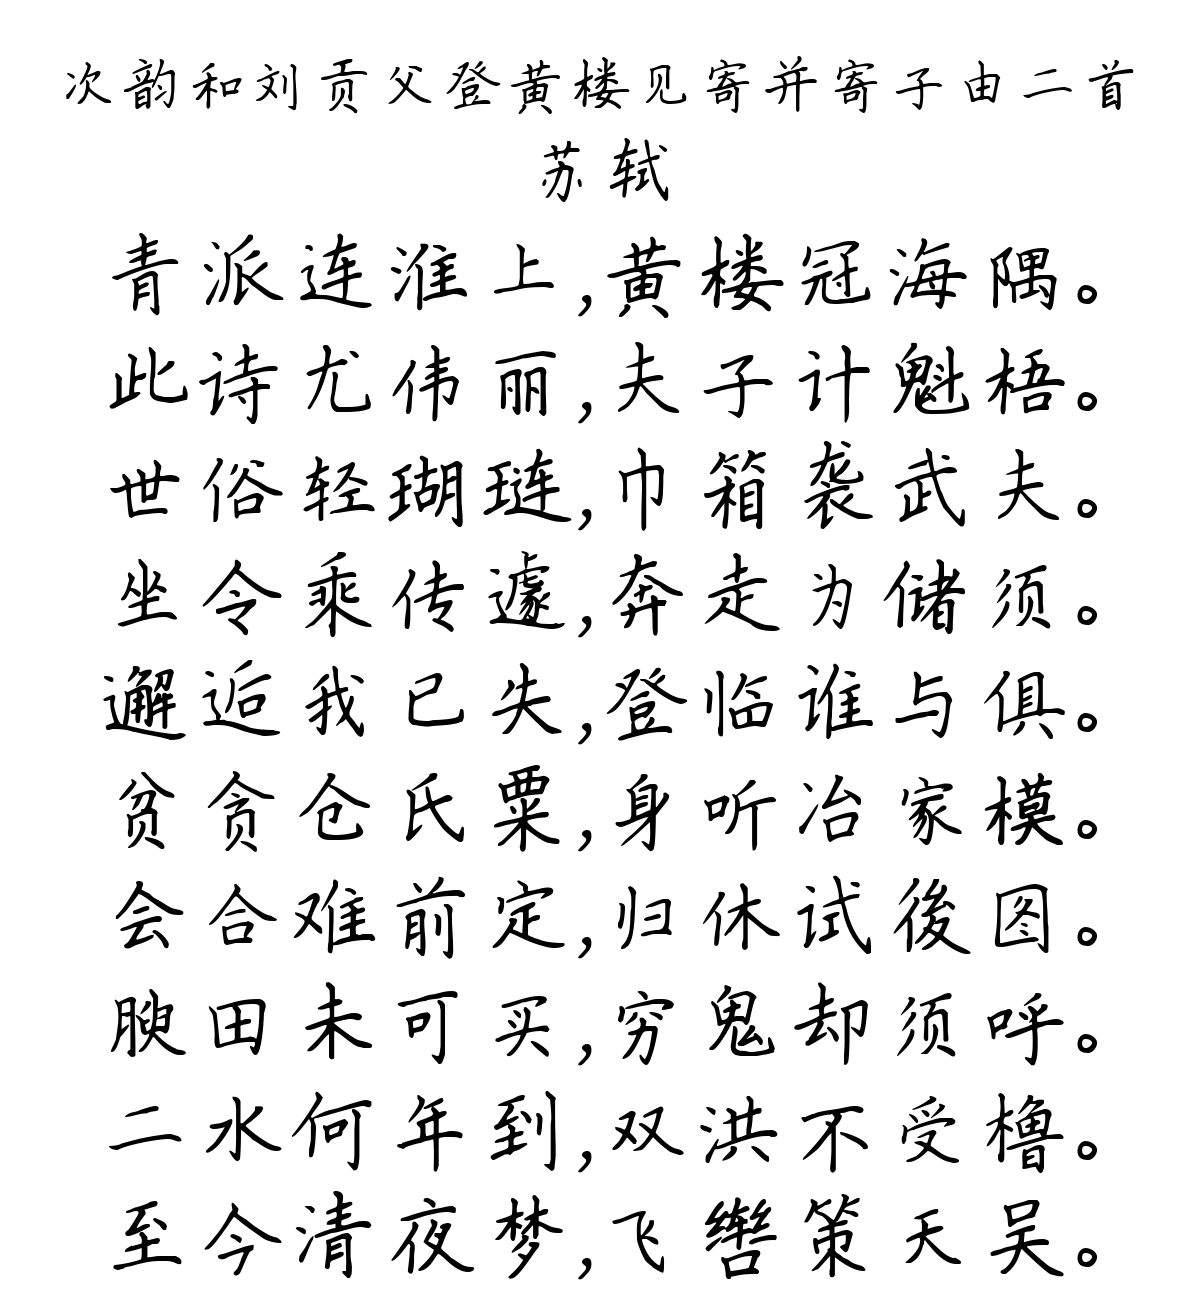 次韵和刘贡父登黄楼见寄并寄子由二首
苏轼
青派连淮上,黄楼冠海隅。
此诗尤伟丽,夫子计魁梧。
世俗轻瑚琏,巾箱袭武夫。
坐令乘传遽,奔走为储须。
邂逅我已失,登临谁与俱。
贫贪仓氏粟,身听冶家模。
会合难前定,归休试後图。
腴田未可买,穷鬼却须呼。
二水何年到,双洪不受橹。
至今清夜梦,飞辔策天吴。